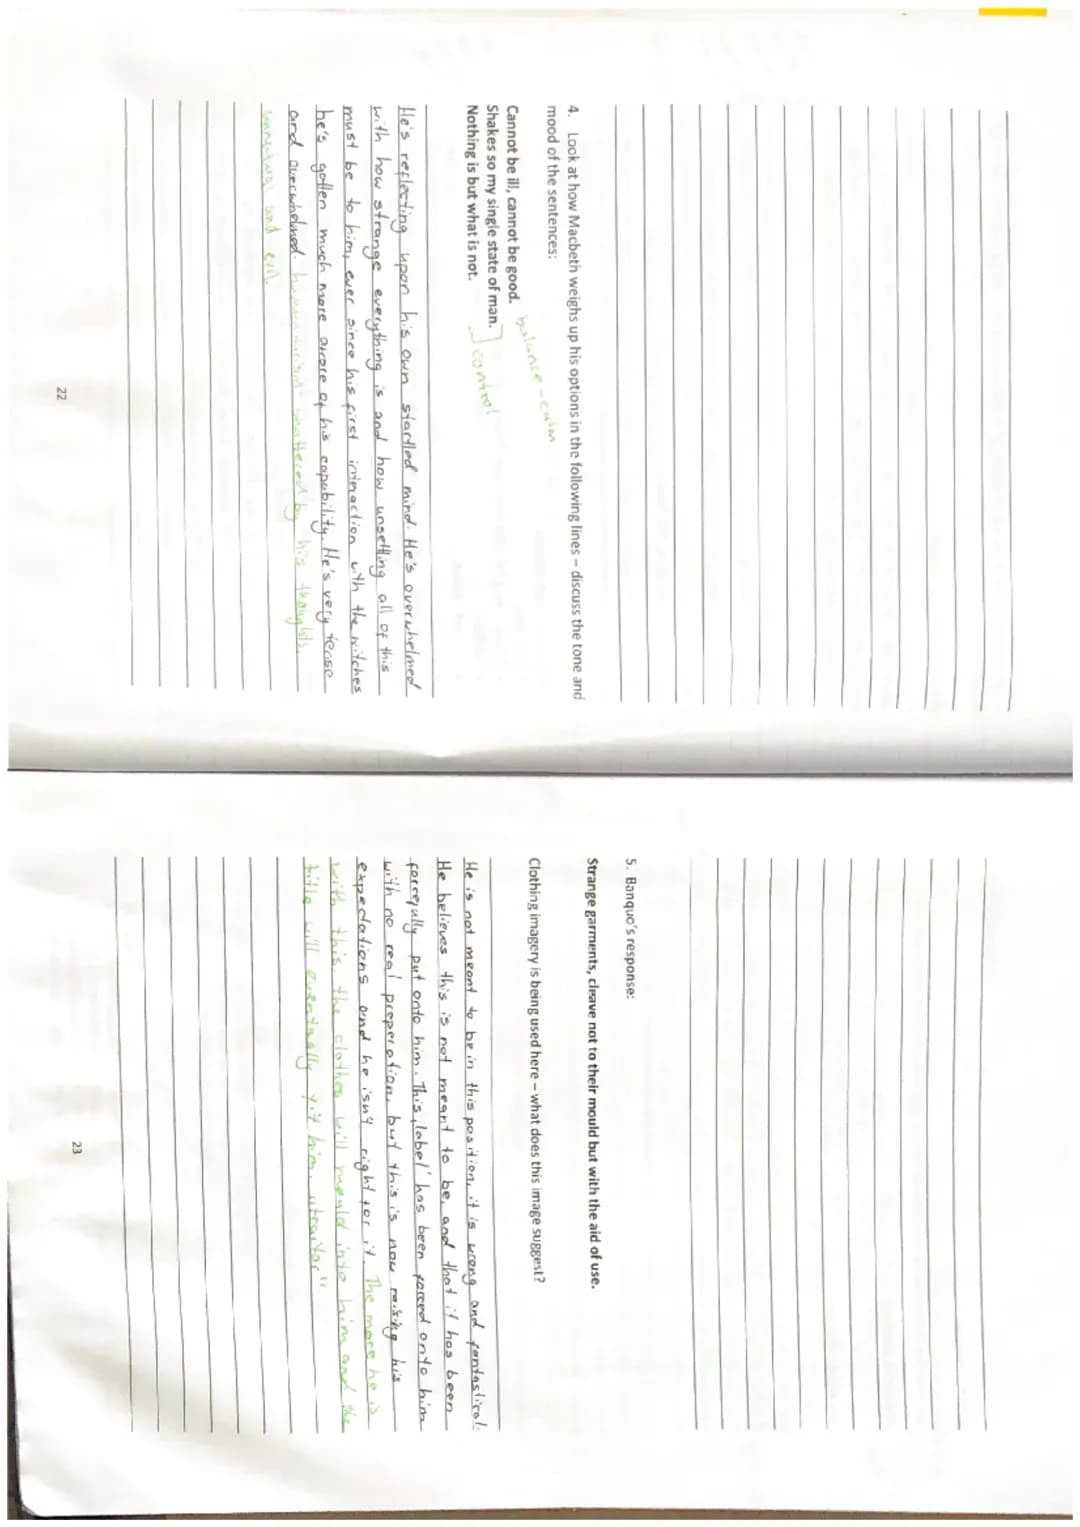 4. Look at how Macbeth weighs up his options in the following lines – discuss the tone and
mood of the sentences:
Cannot be ill, cannot be good. balance - calm
Shakes so my single state of man. ] control
Nothing is but what is not.
He's reflecting upon his own startled mind. He's overwhelmed
with how strange everything is and how unsettling all of this
must be to him, ever since his first interaction with the witches
he's gotten much more aware of his capability. He's very tense
and overwhelmed. shattered by his thoughts.
unnatural and evil.
22
5. Banquo's response:
Strange garments, cleave not to their mould but with the aid of use.
Clothing imagery is being used here – what does this image suggest?
He is not meant to be in this position, it is wrong and fantastical.
He believes this is not meant to be, and that it has been
forcefully put onto him. This 'label' has been forced onto him
with no real preperation, but this is now raising his
expectations and he isn't right for it. The more he is
with this, the clothes will mould into him and the
title will eventually fit him. "traitor"
23